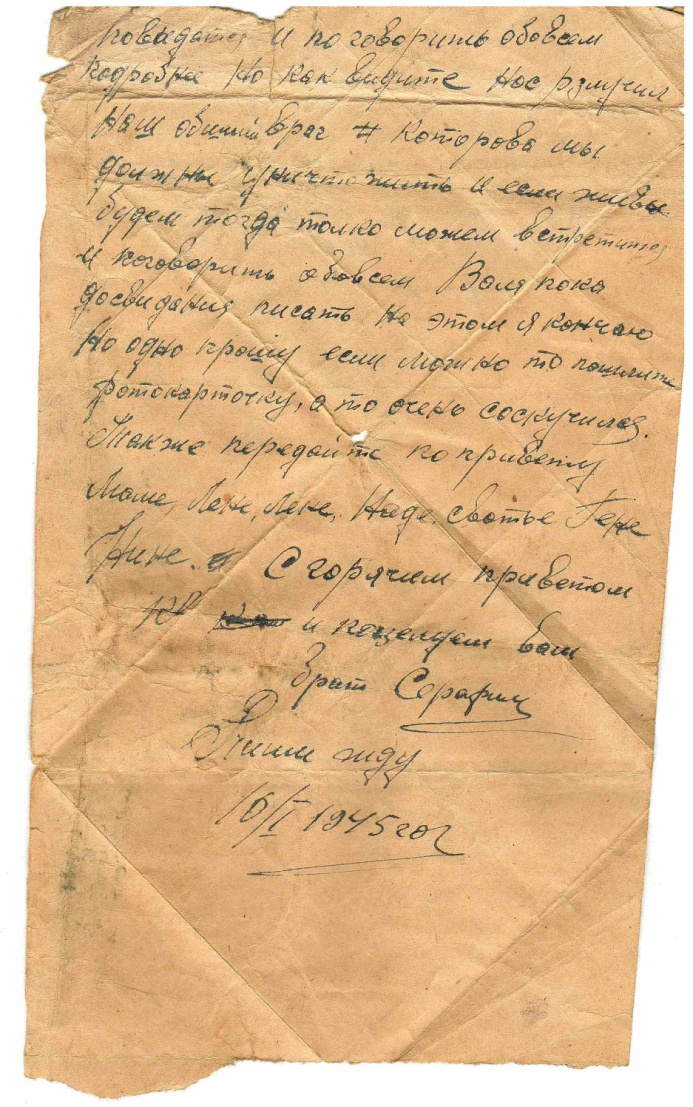 повидатся и поговорить обовсем
подробна но как видите нас разлучил
наш общий враг которова мы
должны уничтожить и если живы
будем тогда толко можем встретится
и поговорить обовсем Валя пока
досвидания писать на этом я кончаю
Но одно прошу если можно то пошлите
фотокарточку, а то очень соскучился.
Также передайте по привету
Маме, Лене, Лёне, Наде, сватье Гене
Нине. С горячим приветом
и поцелуем ваш
брат Серафим
Пиши жду
10/I 1945 год